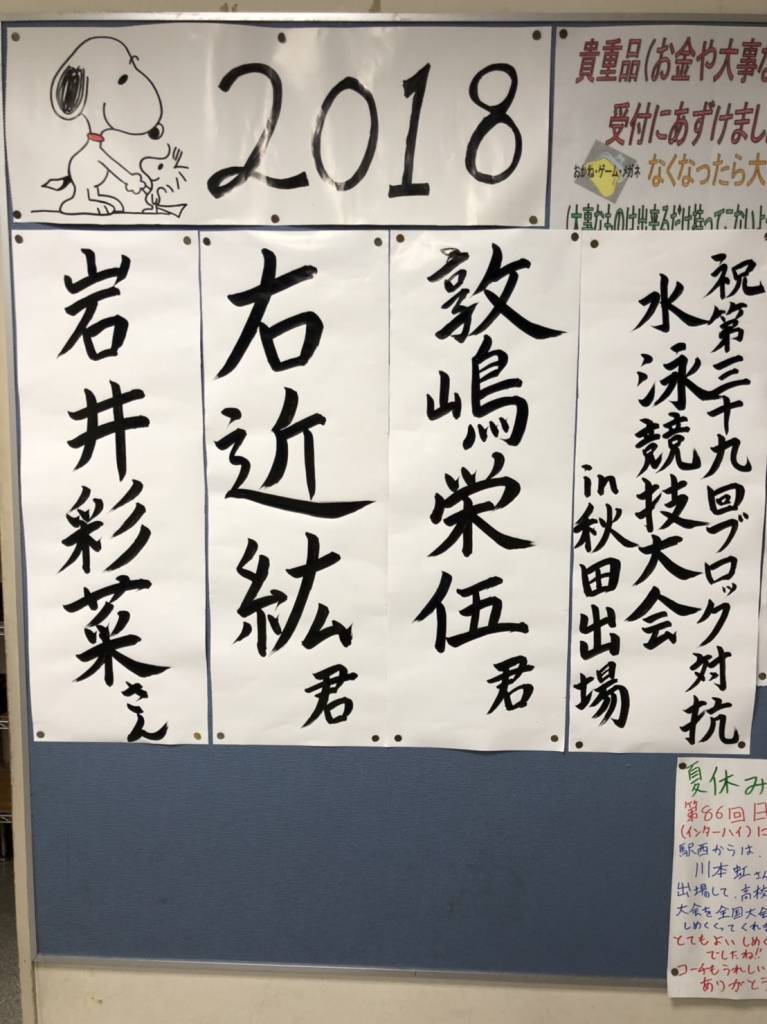 2018
貴重品(お金や大事な
受付にあずけまし
おかね・ゲーム・メガネ
なくなったら大
(大事なものは出来るだけ持ってこないよ
祝第三十九回ブロック対抗
水泳競技大会
in秋田出場
敦嶋栄伍君
右近紘君
岩井彩菜さん
夏休み
第86回日
(インターハイ)に
駅西からは、
川本虹さん
出場して、高校
大会を全国大会
しめくくってくれま
とてもよいしめく
でしたね!!
コーチもうれしい
ありがとう